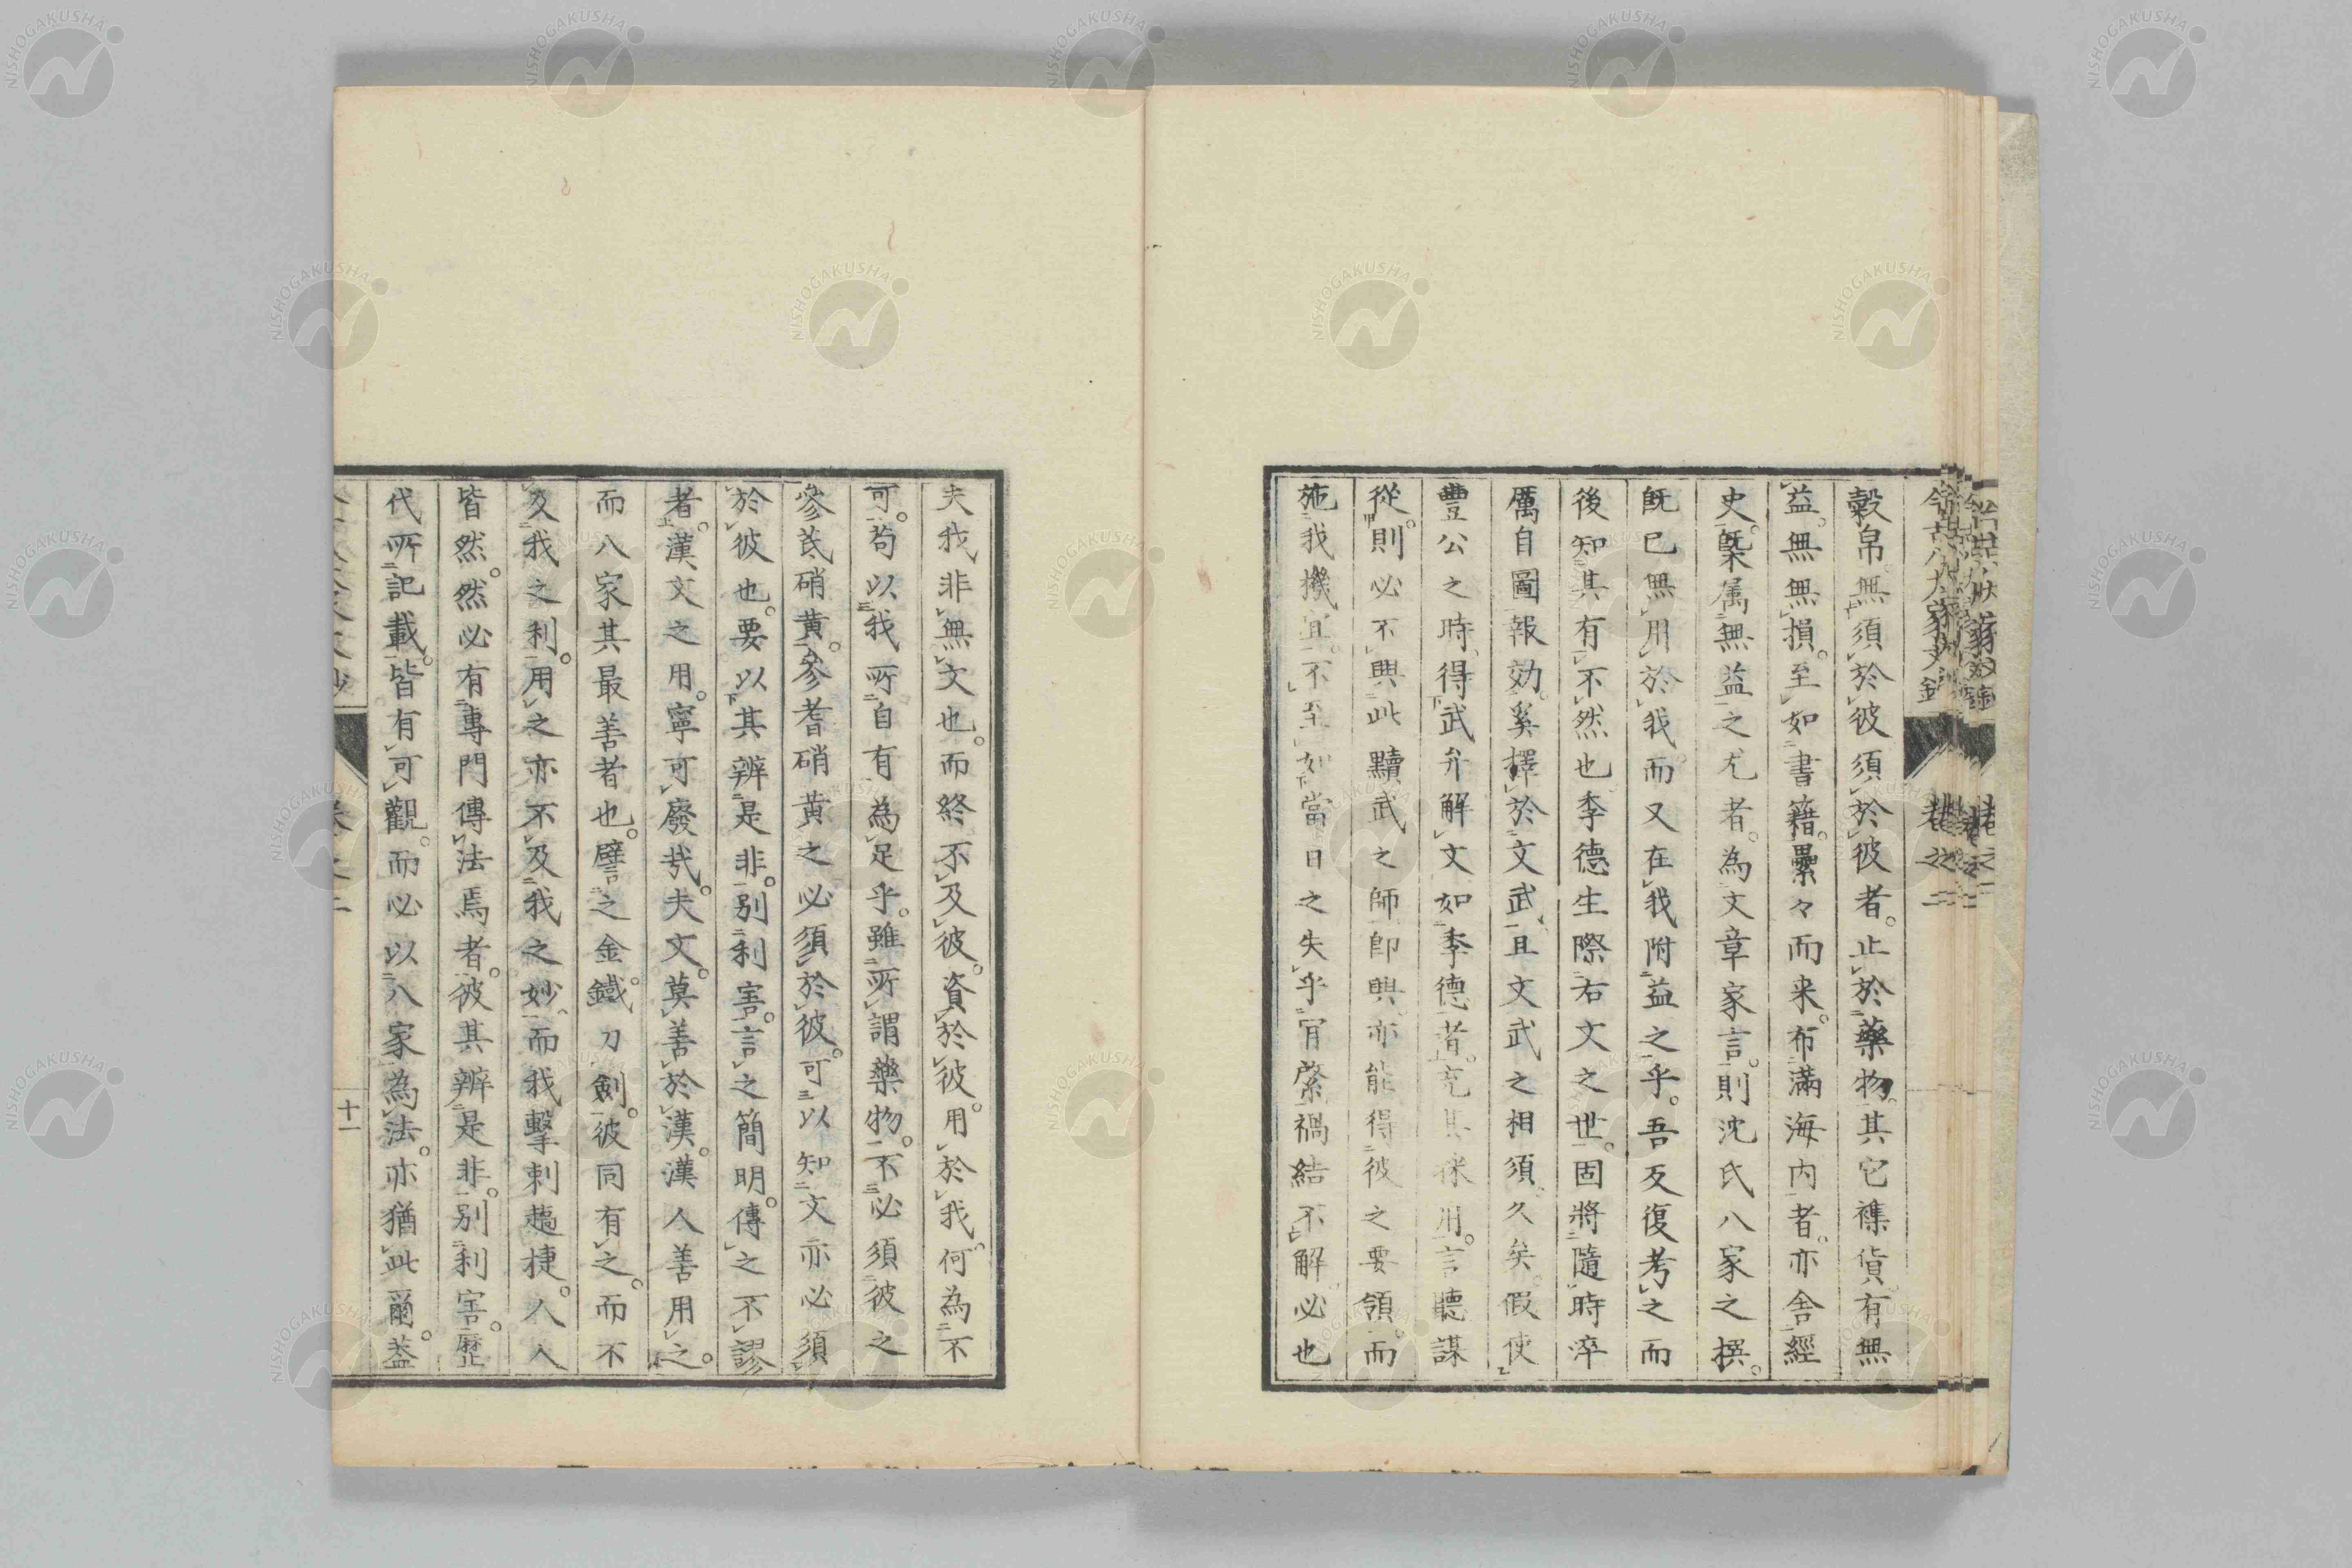 穀帛。無須於彼須於彼者。止於藥物。其它襍貨有無
益。無無損。至如書籍。纍々而来。布滿海内者。亦舎經
史。槩属無益之尤者。為文章家言。則沈氏八家之撰。
既已無用於我。而又在我附益之乎。吾反復考之而
後知其有不然也李德生際右文之世。固將隨時淬
厲自圖報効。奚擇於文武、且文武之相須久矣。假使
豐公之時。得武弁解文如李德者。充其採用。言聽謀
從。則必不興此黷武之師即興。亦能得彼之要領。而
施我機宜。不至如當日之失乎肎綮禍結不解。必也
夫我非無文也。而終不及彼。資於彼。用於我。何為不
可。苟以我所自有為足乎。雖所謂藥物。不必須彼之
參芪硝黄。參耆硝黄之必須於彼。可以知文亦必須
於彼也。要以其辨是非。別利害。言之簡明。傳之不謬
者。漢文之用。寧可廢哉。夫文。莫善於漢。漢人善用之。
而八家其最善者也。譬之金鐵。刀劍。彼同有之。而不
及我之利。用之亦不及我之妙。而我擊刺趫捷。人人
皆然。然必有專門傳法焉者。彼其辨是非。別利害。歴
代所記載。皆有可觀。而必以八家為法。亦猶此爾。葢
十一